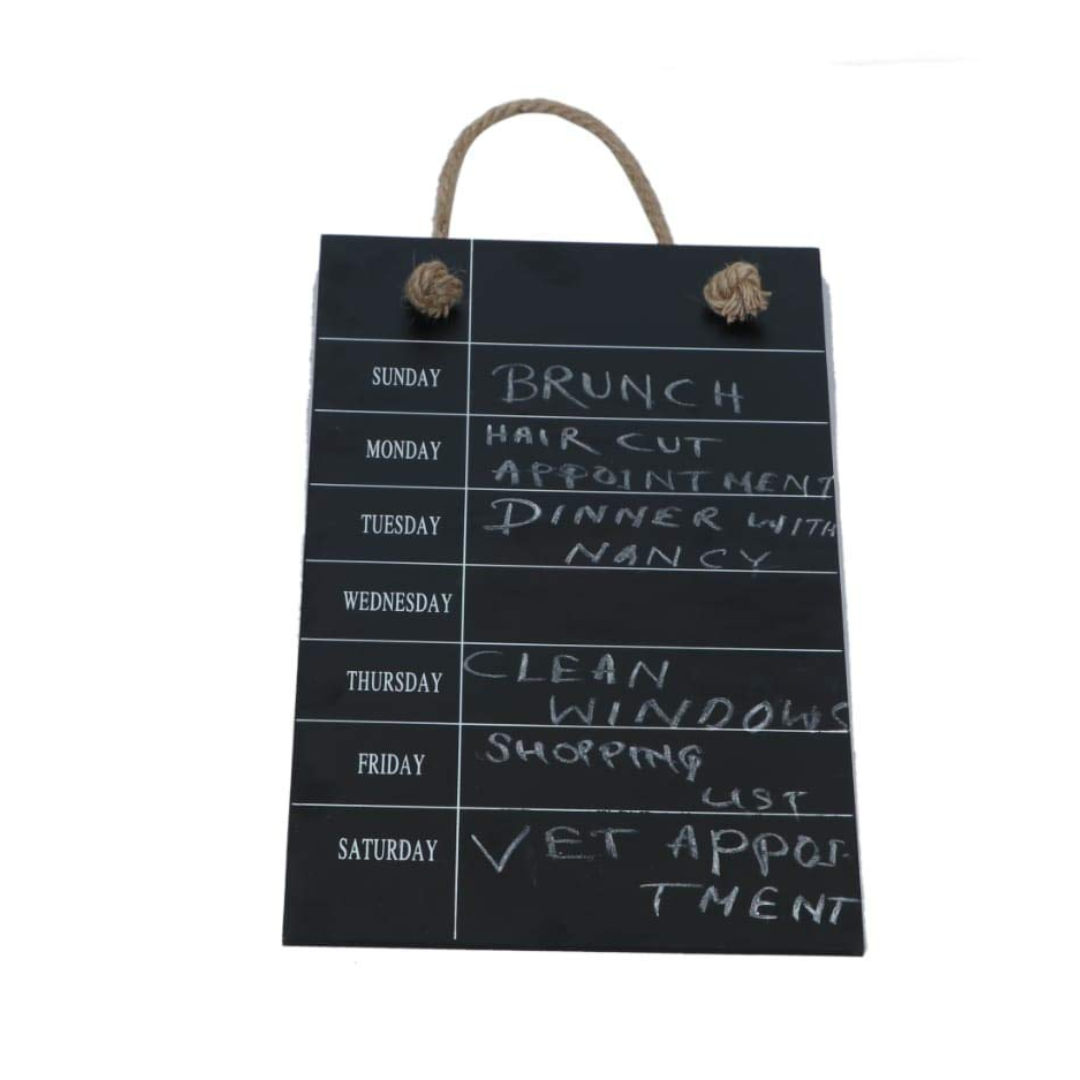 SUNDAY BRUNCH
MONDAY HAIR CUT
APPOINTMENT
TUESDAY DINNER WITH
NANCY
WEDNESDAY
THURSDAY CLEAN
WINDOWS
FRIDAY SHOPPING
LIST
SATURDAY VET APPOI-
TMENT